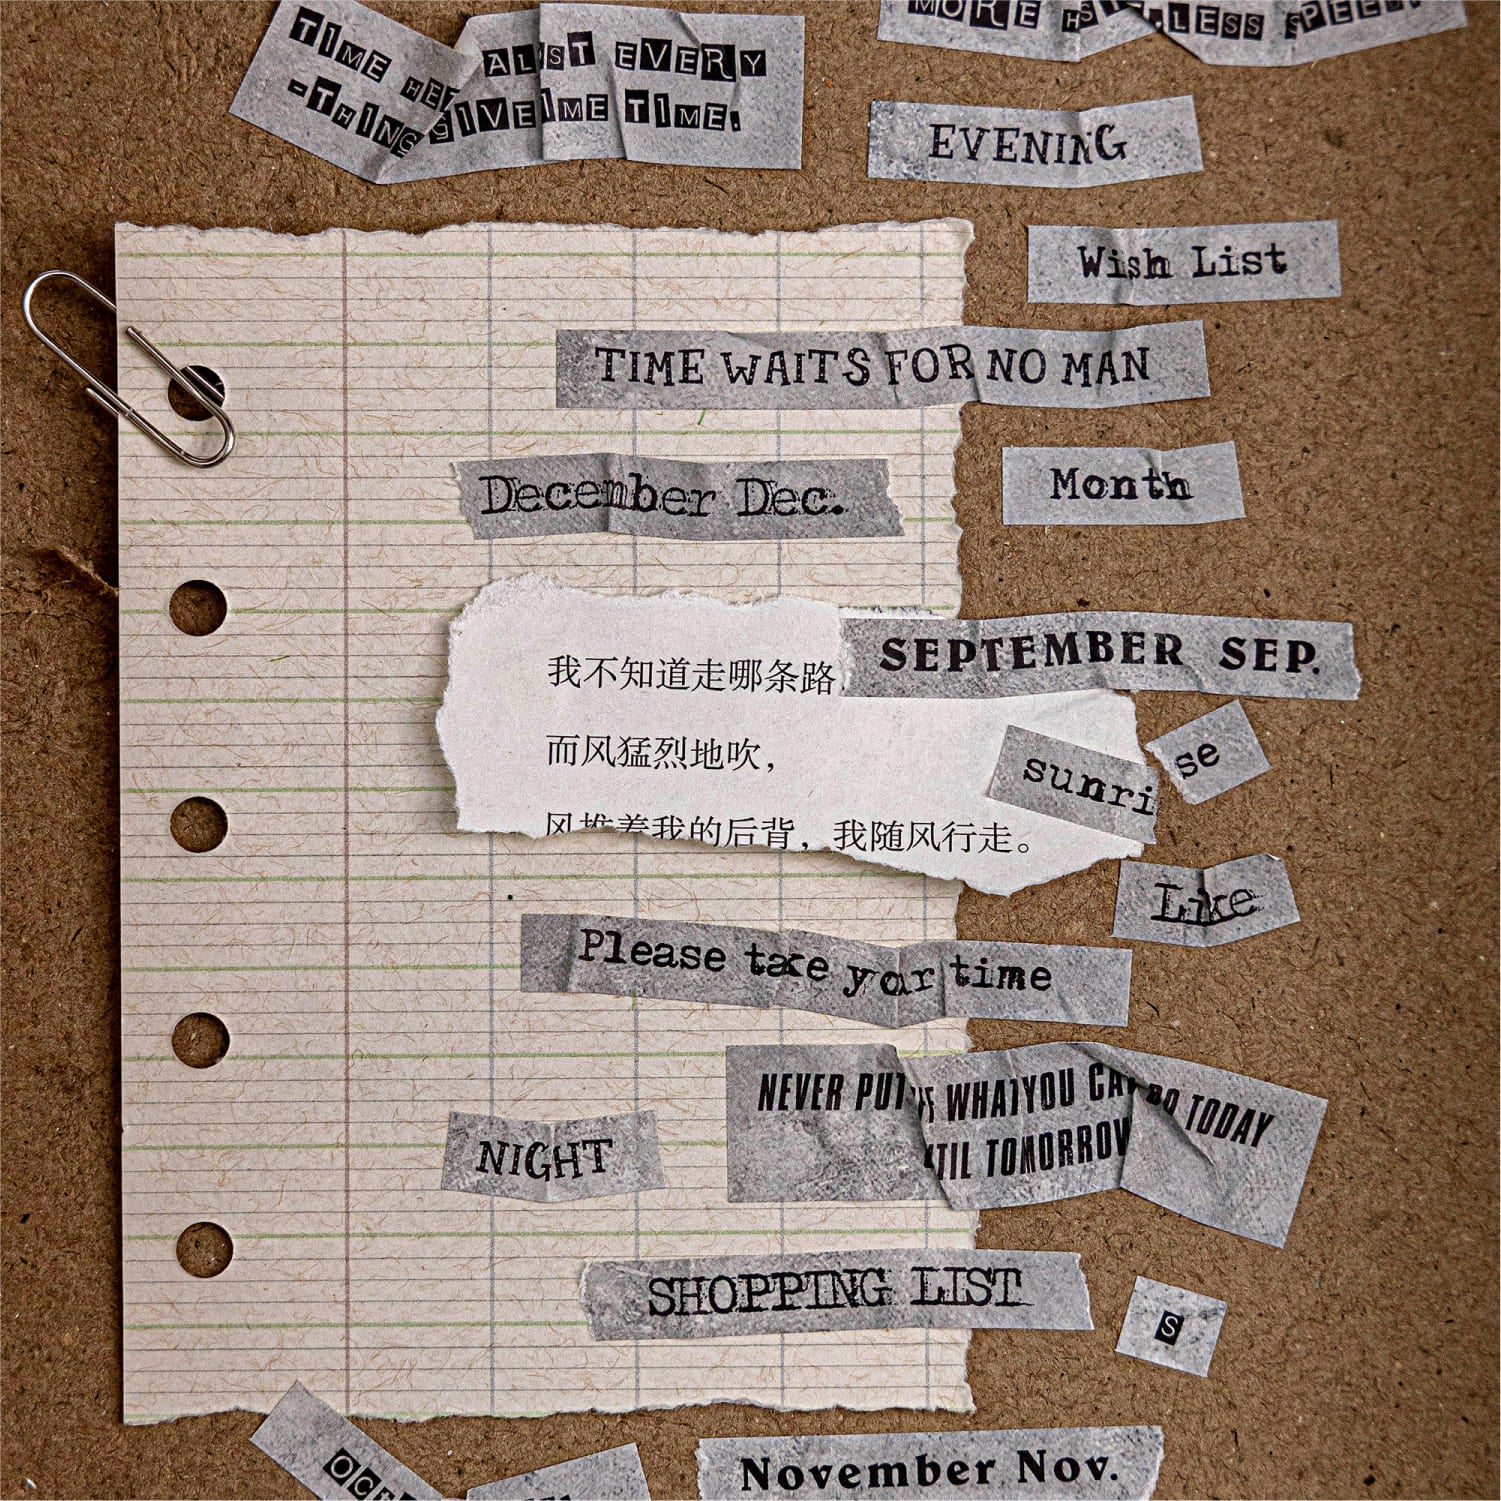 TIME ALST EVERY
-THING GIVE IME TIME.
MORE LESS SPEED.
EVENING
Wish List
TIME WAITS FOR NO MAN
December Dec.
Month
SEPTEMBER SEP.
我不知道走哪条路
而风猛烈地吹，
风推着我的后背，我随风行走。
sunri
se
Like
Please take your time
NEVER PUT WHAT YOU CAN DO TODAY
TIL TOMORROW
NIGHT
SHOPPING LIST
S
OCT
November Nov.